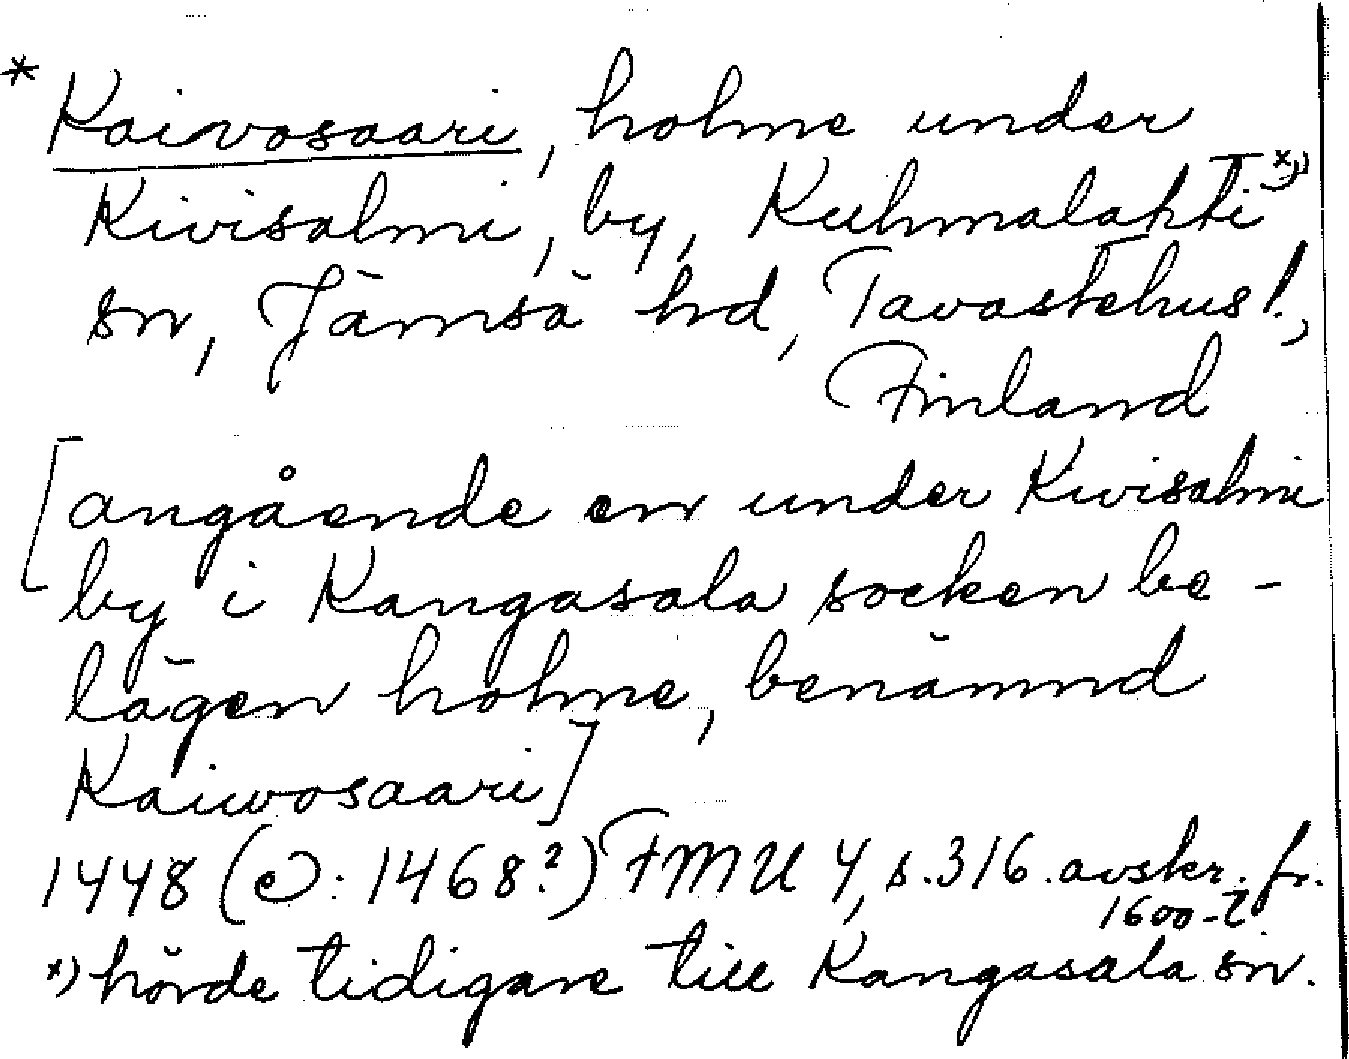 * Kaivosaari, holme under
Kivisalmi, by, Kuhmalahti *)
sn, Jämsä hd, Tavastehus l.,
Finland
[angående en under Kivisalmi
by i Kangasala socken be-
lägen holme, benämnd
Kaiwosaari]
1448 (e: 1468?) FMU 4, s. 316. avskr. fr.
1600-t.
*) hörde tidigare till Kangasala sn.